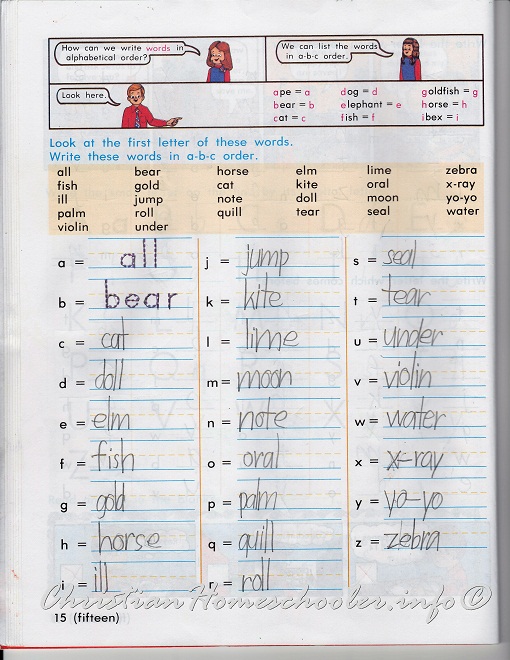 How can we write words in
alphabetical order?
We can list the words
in a-b-c order.
Look here.
ape = a dog = d goldfish = g
bear = b elephant = e horse = h
cat = c fish = f ibex = i
Look at the first letter of these words.
Write these words in a-b-c order.
all bear horse elm lime zebra
fish gold cat kite oral x-ray
ill jump note doll moon yo-yo
palm roll quill tear seal water
violin under
a = all j = jump s = seal
b = bear k = kite t = tear
c = cat l = lime u = under
d = doll m = moon v = violin
e = elm n = note w = water
f = fish o = oral x = x-ray
g = gold p = palm y = yo-yo
h = horse q = quill z = zebra
i = ill r = roll
ChristianHomeschooler.info ©
15 (fifteen)